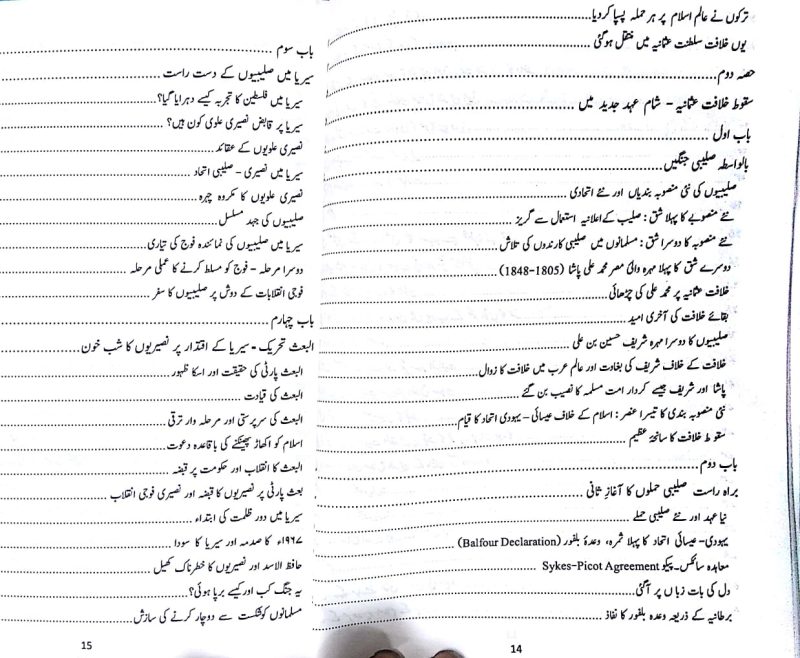 ترکوں نے عالم اسلام پر ہر حملہ پسپا کر دیا
یوں خلافت سلطنت عثمانیہ میں منتقل ہوگئی
حصہ دوم
سقوط خلافت عثمانیہ - شام عہد جدید میں
باب اول
بالواسطہ صلیبی جنگیں
صلیبیوں کی نئی منصوبہ بندیاں اور نئے اتحادی
نئے منصوبے کا پہلا شق : صلیب کے اعلانیہ استعمال سے گریز
نئے منصوبہ کا دوسرا شق : مسلمانوں میں صلیبی کارندوں کی تلاش
دوسرے شق کا پہلا مہرہ والئ مصر محمد علی پاشا (1805-1848)
خلافت عثمانیہ پر محمد علی کی چڑھائی
بقائے خلافت کی آخری امید
صلیبیوں کا دوسرا مہرہ شریف حسین بن علی
خلافت کے خلاف شریف کی بغاوت اور عالم عرب میں خلافت کا زوال
پاشا اور شریف جیسے کردار امت مسلمہ کا نصیب بن گئے
نئی منصوبہ بندی کا تیسرا عنصر : اسلام کے خلاف عیسائی - یہودی اتحاد کا قیام
سقوط خلافت کا سانحۂ عظیم
باب دوم
براہ راست صلیبی حملوں کا آغازِ ثانی
نیا عہد اور نئے صلیبی حملے
یہودی - عیسائی اتحاد کا پہلا ثمرہ، وعدۂ بلفور (Balfour Declaration)
معاہدہ سائکس۔پیکو Sykes-Picot Agreement
دل کی بات زباں پر آگئی
برطانیہ کے ذریعہ وعدہ بلفور کا نفاذ
14
باب سوم
سیریا میں صلیبیوں کے دست راست
سیریا میں فلسطین کا تجربہ کیسے دہرایا گیا؟
سیریا پر قابض نصیری علوی کون ہیں؟
نصیری علویوں کے عقائد
سیریا میں نصیری - صلیبی اتحاد
نصیری علویوں کا مکروہ چہرہ
صلیبیوں کی جہد مسلسل
سیریا میں صلیبیوں کی نمائندہ فوج کی تیاری
دوسرا مرحلہ - فوج کو مسلط کرنے کا عملی مرحلہ
فوجی انقلابات کے دوش پر صلیبیوں کا سفر
باب چہارم
البعث تحریک - سیریا کے اقتدار پر نصیریوں کا شب خون
البعث پارٹی کی حقیقت اور اسکا ظہور
البعث کی قیادت
البعث کی سرپرستی اور مرحلہ وار ترقی
اسلام کو اکھاڑ پھینکنے کی باقاعدہ دعوت
البعث کا انقلاب اور حکومت پر قبضہ
بعث پارٹی پر نصیریوں کا قبضہ اور نصیری فوجی انقلاب
سیریا میں دور ظلمت کی ابتداء
۱۹۶۷ء کا صدمہ اور سیریا کا سودا
حافظ الاسد اور نصیریوں کا خطرناک کھیل
یہ جنگ کب اور کیسے برپا ہوئی؟
مسلمانوں کو شکست سے دوچار کرنے کی سازش
15